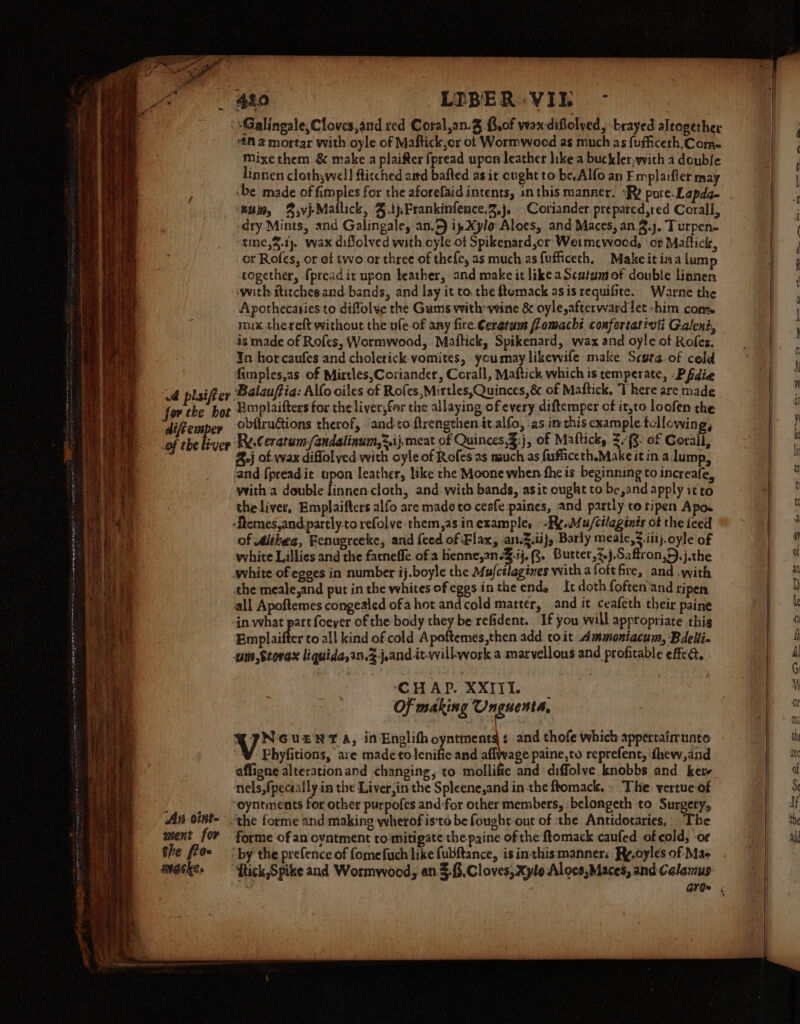 420 LIBER VII.
Galingale, Cloves, and red Coral, an.℥.ß. of wax dissolved, brayed altogether
in a mortar with oyle of Mastick, or of Wormwood as much as sufficeth. Com-
mixe them & make a plaister spread upon leather like a buckler, with a double
linnen cloth, well stitched and basted as it ought to be. Also an Emplaister may
be made of simples for the aforesaid intents, in this manner. ℞ pure Lapda-
num, ℥.vj. Mastick, ℥.ij. Frankinsence.℥.j. Coriander prepared, red Corall,
dry Mints, and Galingale, an.℈ ij. Xylo Aloes, and Maces, an ℥.j. Turpen-
tine, ℥.ij. wax dissolved with oyle of Spikenard, or Wormewood, or Mastick,
or Roses, or of two or three of these, as much as sufficeth. Make it in a lump
together, spread it upon leather, and make it like a Scutum of double linnen
with stitches and bands, and lay it to the stomack as is requisite. Warne the
Apothecaries to dissolve the Gums with wine & oyle, afterward let him com-
mix the rest without the use of any fire. Ceratum stomachi confortativũ Galeni,
is made of Roses, Wormwood, Mastick, Spikenard, wax and oyle of Roses.
In hot causes and cholerick vomites, you may likewise make Scuta of cold
simples, as of Mirtles, Coriander, Corall, Mastick which is temperate, Psidie
A plaister Balaustia: Also oiles of Roses, Mirtles, Quinces, & of Mastick. There are made
for the hot Emplaisters for the liver, for the allaying of every distemper of it, to loosen the
distemper obstructions therof, and to strengthen it also, as in this example following,
of the liver ℞. Ceratum sandalinum, ℥.ij. meat of Quinces, ℥.j, of Mastick, ℥.ß. of Corall,
℥.j of wax dissolved with oyle of Roses as much as sufficeth. Make it in a lump,
and spread it upon leather, like the Moone when she is beginning to increase,
with a double linnen cloth, and with bands, as it ought to be, and apply it to
the liver. Emplaisters also are made to cease paines, and partly to ripen Apo-
stemes, and partly to resolve them, as in example, ℞. Muscilaginis of the seed
of Althea, Fenugreeke, and seed of Flax, an.℥.iij, Barly meale, ℥.iiij. oyle of
white Lillies and the fatnesse of a henne, an.℥.ij.ß. Butter, ℥.j. Saffron, ℈.j. the
white of egges in number ij. boyle the Muscilagines with a soft fire, and with
the meale, and put in the whites of eggs in the end. It doth soften and ripen
all Apostemes congealed of a hot and cold matter, and it ceaseth their paine
in what part soever of the body they be resident. If you will appropriate this
Emplaister to all kind of cold Apostemes, then add to it Ammoniacum, Bdelli-
um, Storax liquida, an.℥.j. and it will work a marvellous and profitable effect.
CHAP. XXIII.
Of making Unguenta.
VNGUENTA, in English oyntments: and those which appertain unto
Physitions, are made to lenifie and asswage paine, to represent, shew, and
assigne alteration and changing, to mollifie and dissolve knobbs and ker-
nels, specially in the Liver, in the Spleene, and in the stomack. The vertue of
oyntments for other purposes and for other members, belongeth to Surgery,
An oint- the forme and making wherof is to be sought out of the Antidotaries. The
ment for forme of an oyntment to mitigate the paine of the stomack caused of cold, or
the sto- by the presence of some such like substance, is in this manner. ℞. oyles of Ma-
macke. stick, Spike and Wormwood, an ℥.ß. Cloves, Xylo Aloes, Maces, and Calamus
aro-